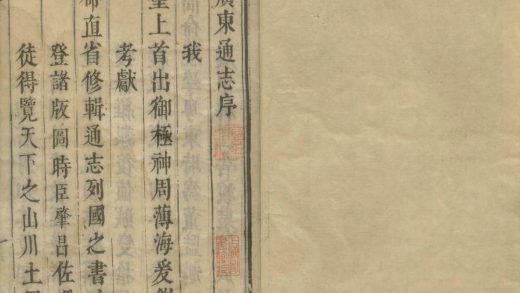 廣東通志序
我
皇上首出御極神周薄海爰
考獻
命直省修輯通志列國之書
登諸版圖時臣肇昌佐
徒得覽天下之山川土